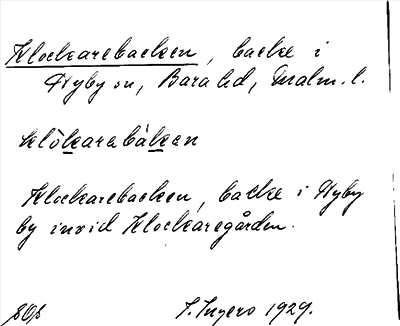 Klockarebacken, backe i
Hyby sn, Bara hd, Malm. l.
klòkarabàkan
Klockarebacken, backe i Hyby
by invid Klockaregården.
J. Ingers 1929.